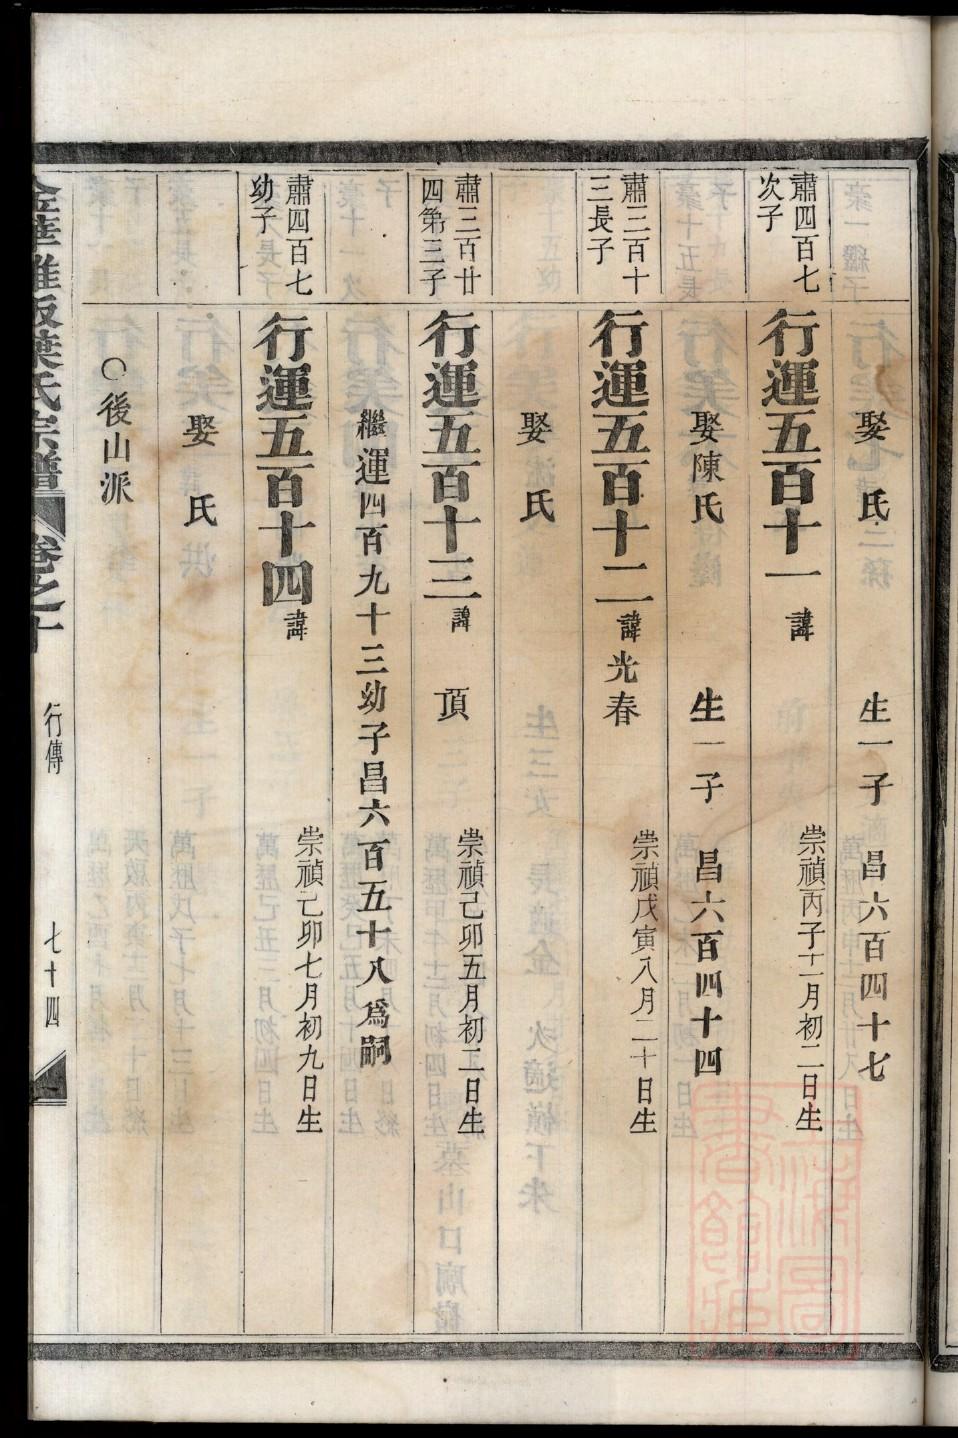 娶　氏　生一子　昌六百四十七
肅四百七
次子
行運五百十一　諱　崇禎丙子十一月初二日生
娶陳氏　生一子　昌六百四十四
肅三百十
三長子
行運五百十二　諱光春　崇禎戊寅八月二十日生
娶　氏
肅三百廿
四第三子
行運五百十三　諱　頂　崇禎己卯五月初二日生
繼運四百九十三幼子昌六百五十八為嗣
肅四百七
幼子
行運五百十四　諱　崇禎己卯七月初九日生
娶　氏
○後山派
葉氏宗譜　卷之十　行傳　七十四